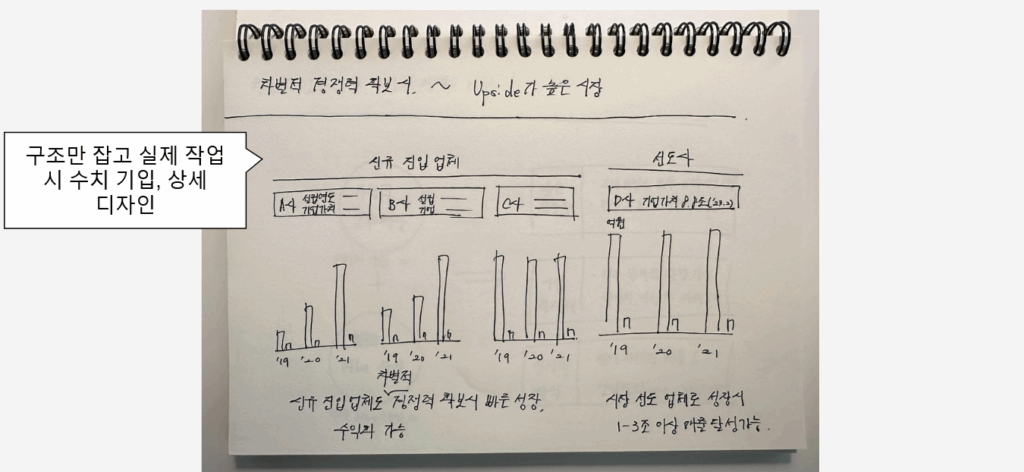 차별적 경쟁력 확보시. ~ Upside가 높은 시장
구조만 잡고 실제 작업
시 수치 기입, 상세
디자인
신규 진입 업체
선도사
A사 설립연도
기업가격
B사 설립
기업
C사
D사 기업가격 8.8조('23.2)
억원
'19 '20 '21
'19 '20 '21
'19 '20 '21
'19 '20 '21
차별적
신규 진입업체도 경쟁력 확보시 빠른 성장,
수익화 가능
시장 선도 업체로 성장시
1-3조 이상 매출 달성가능.